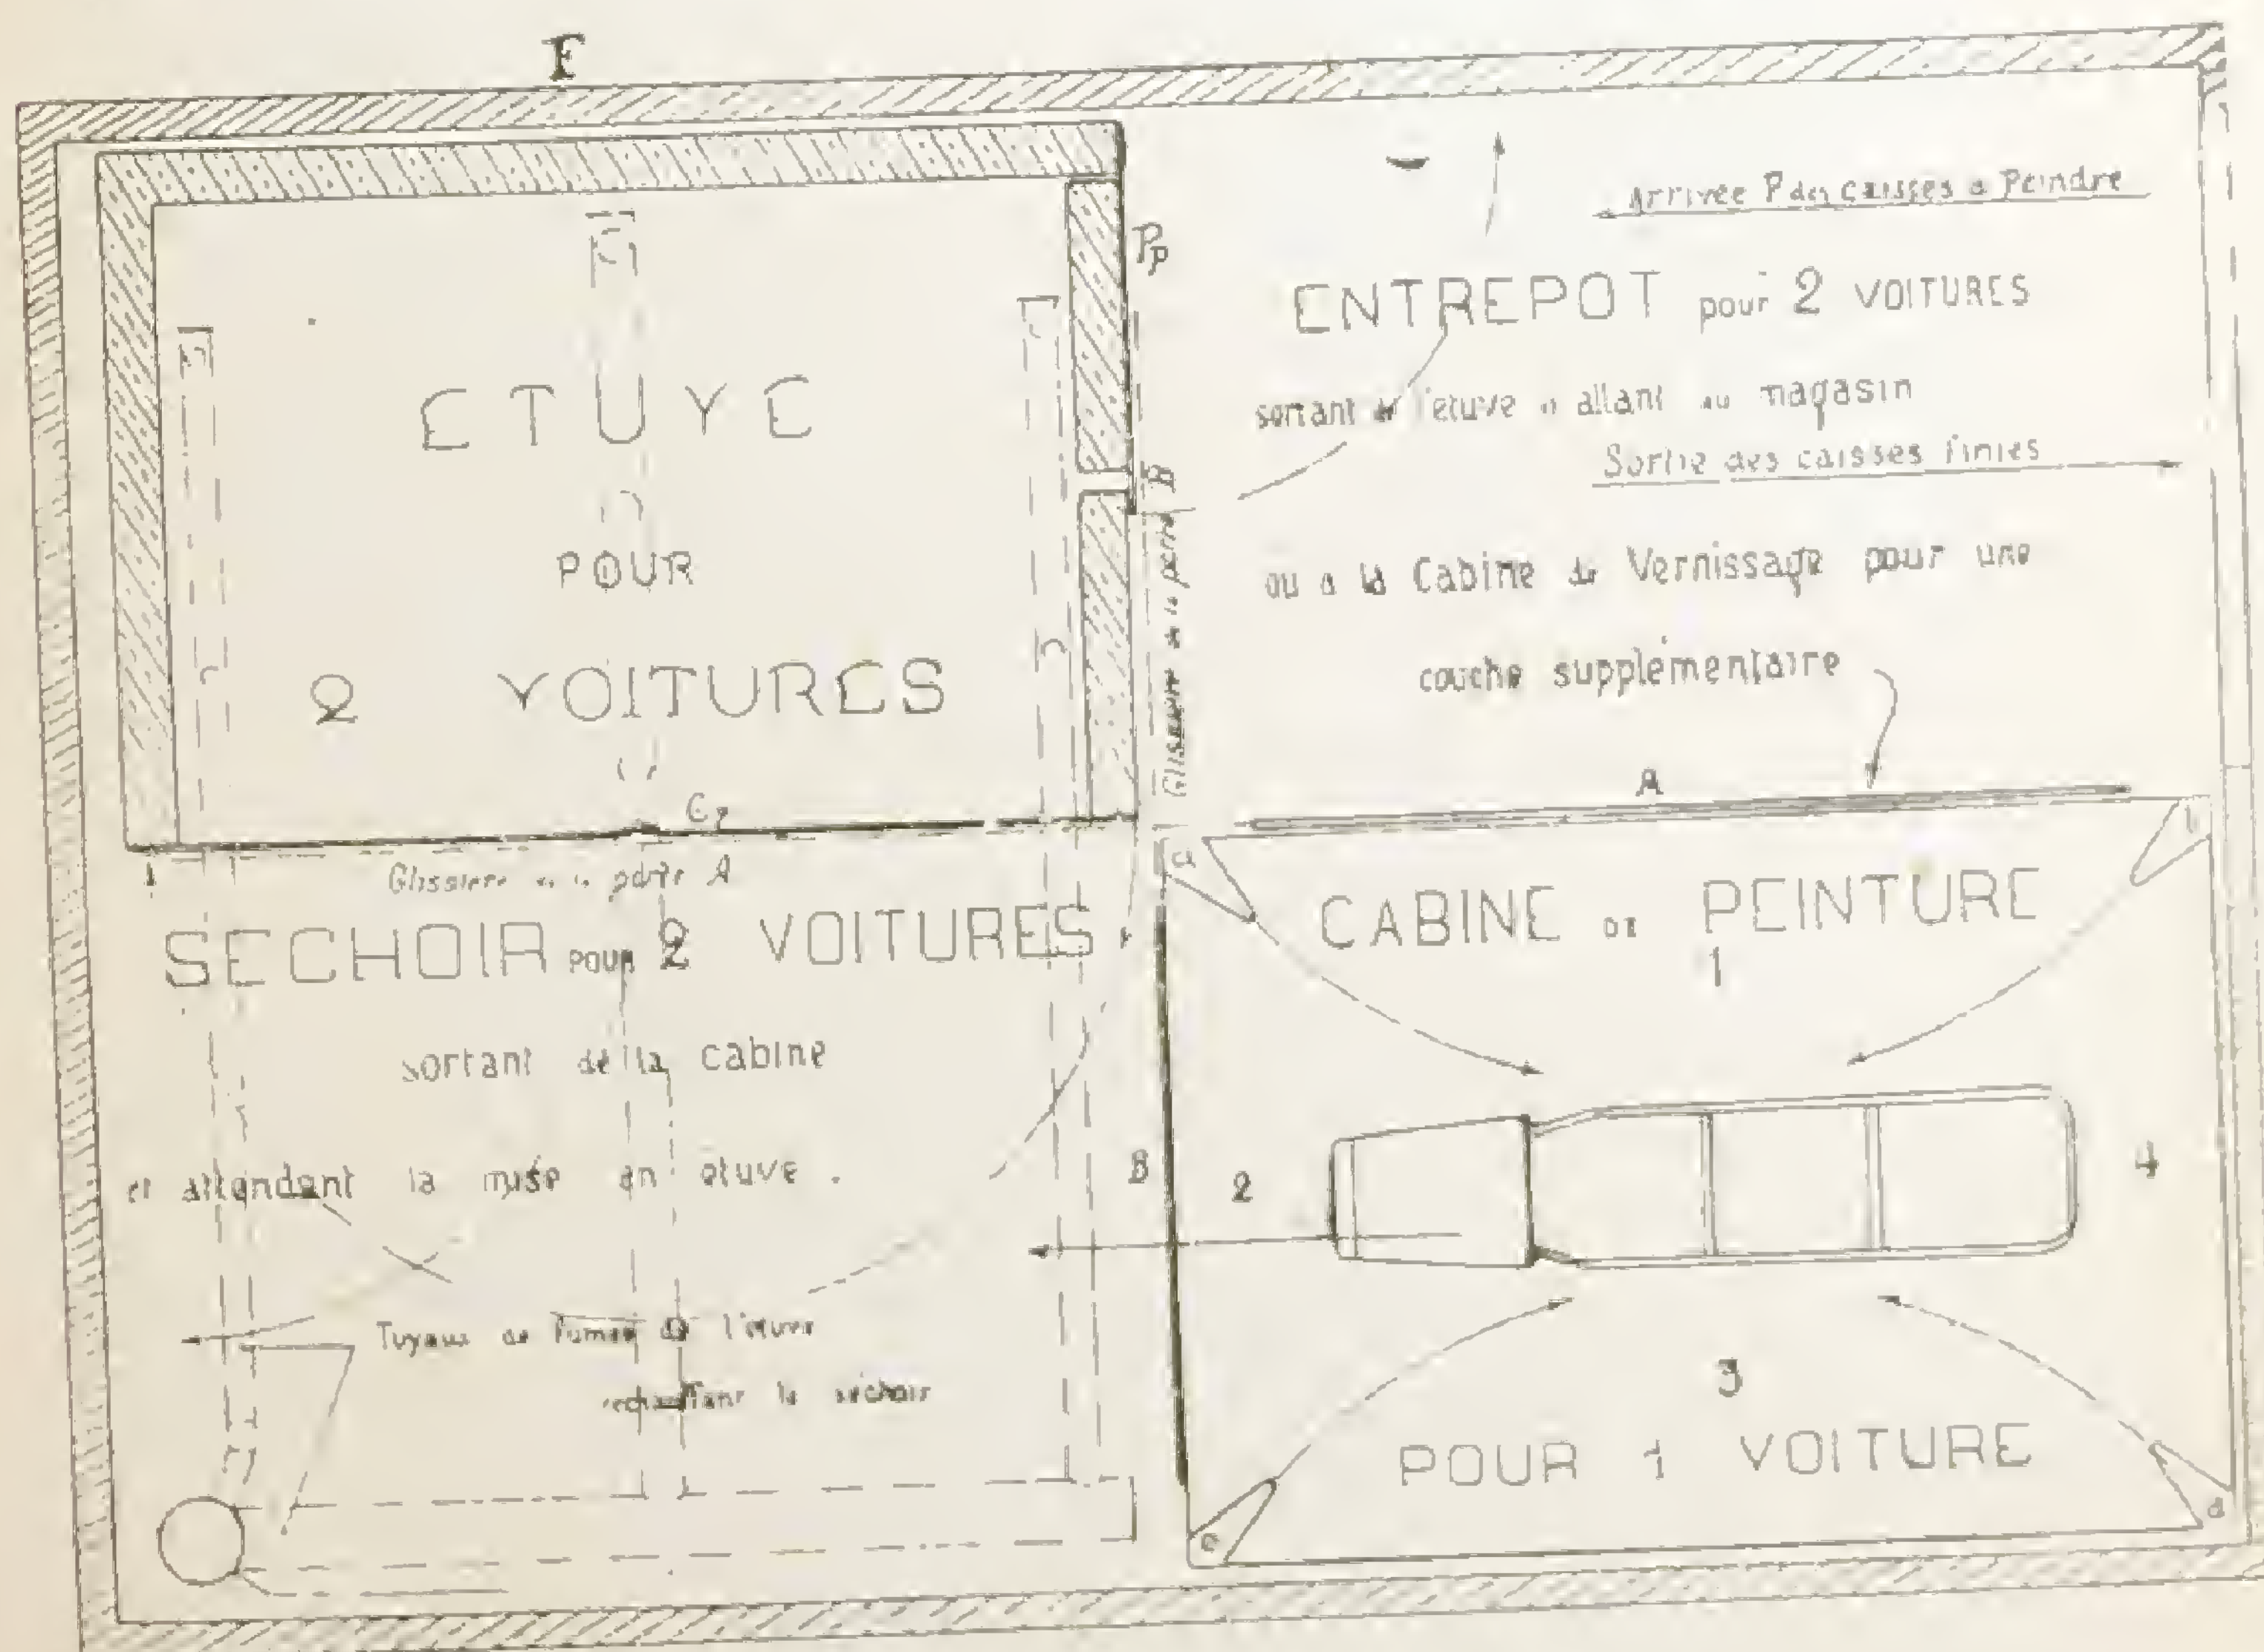 F
ETUVE
POUR
2 VOITURES
Pp
Arrivée P des caisses à Peindre
ENTREPOT pour 2 VOITURES
sortant de l'étuve et allant au magasin
Sortie des caisses finies
ou à la Cabine de Vernissage pour une
couche supplémentaire
Glissière de la porte B
A
Glissière de la porte A
SECHOIR pour 2 VOITURES
sortant de la cabine
et attendant la mise en étuve.
Tuyaux de fumée de l'étuve
réchauffant le séchoir
B
a
b
CABINE DE PEINTURE
1
2
4
3
POUR 1 VOITURE
c
d